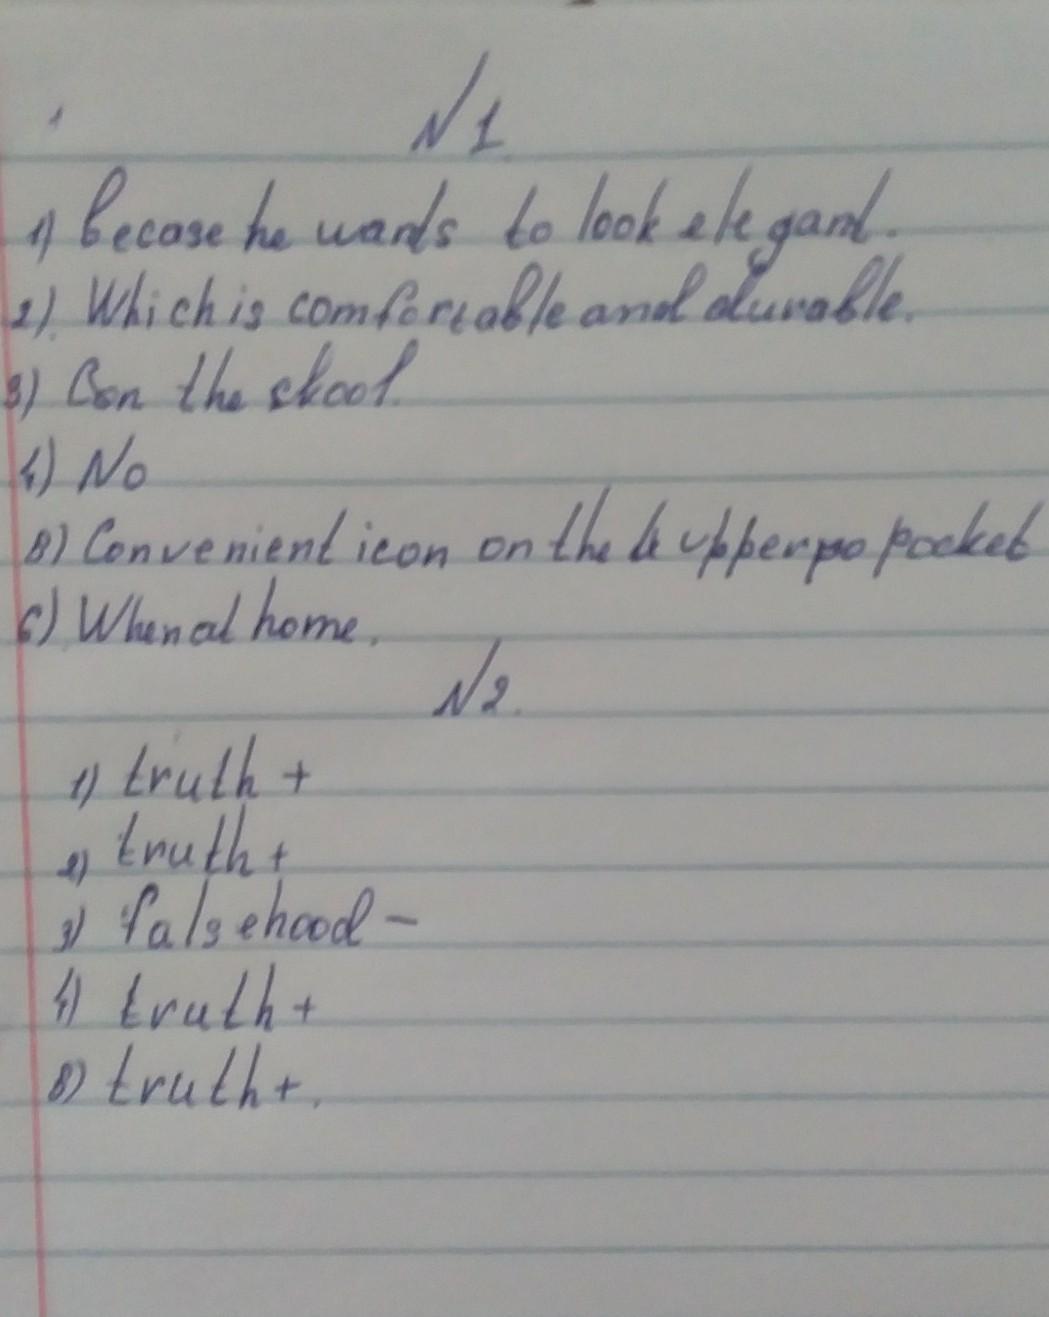 N1.
1) Becose he wants to look elegant.
2). Which is comfortable and durable.
3) On the skool.
4) No
5) Convenient icon on the upper po pocket
6) When at home.
N2.
1) truth +
2) truth +
3) falsehood -
4) truth +
5) truth +.